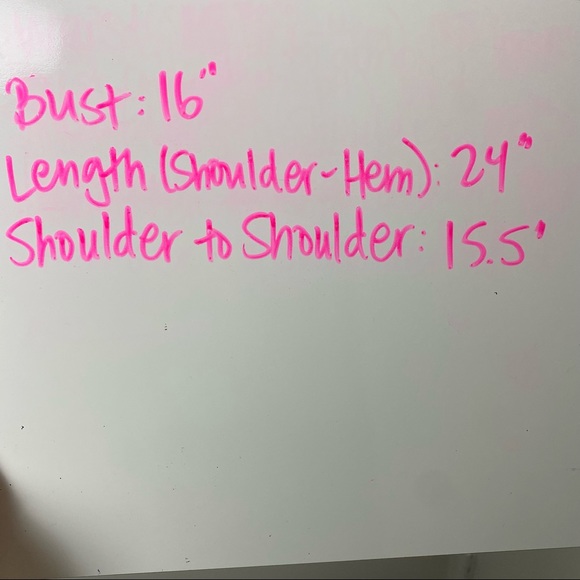 Bust: 16"
Length (Shoulder-Hem): 24"
Shoulder to Shoulder: 15.5"